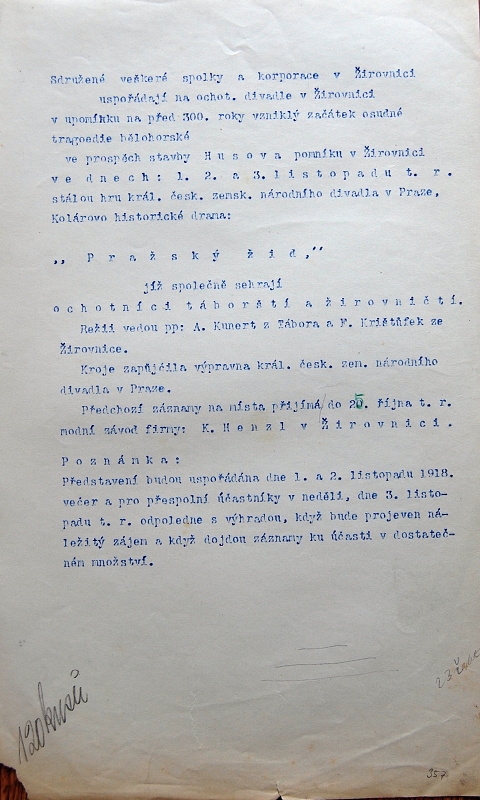 Sdružené veškeré spolky a korporace v Žirovnici
uspořádají na ochot. divadle v Žirovnici
v upomínku na před 300. roky vzniklý začátek osudné
tragoedie bělohorské
ve prospěch stavby Husova pomníku v Žirovnici
ve dnech: 1. 2. a 3. listopadu t. r.
stálou hru král. česk. zemsk. národního divadla v Praze,
Kolárovo historické drama:
,, Pražský žid,"
jíž společně sehrají
ochotníci táborští a žirovničtí.
Režii vedou pp: A. Kunert z Tábora a F. Krištůfek ze
Žirovnice.
Kroje zapůjčila výpravna král. česk. zem. národního
divadla v Praze.
Předchozí záznamy na místa přijímá do 25. října t. r.
modní závod firmy: K. Henzl v Žirovnici.
Poznámka:
Představení budou uspořádána dne 1. a 2. listopadu 1918.
večer a pro přespolní účastníky v neděli, dne 3. listo-
padu t. r. odpoledne s výhradou, když bude projeven ná-
ležitý zájem a když dojdou záznamy ku účasti v dostateč-
ném množství.
120 kusů
23
357